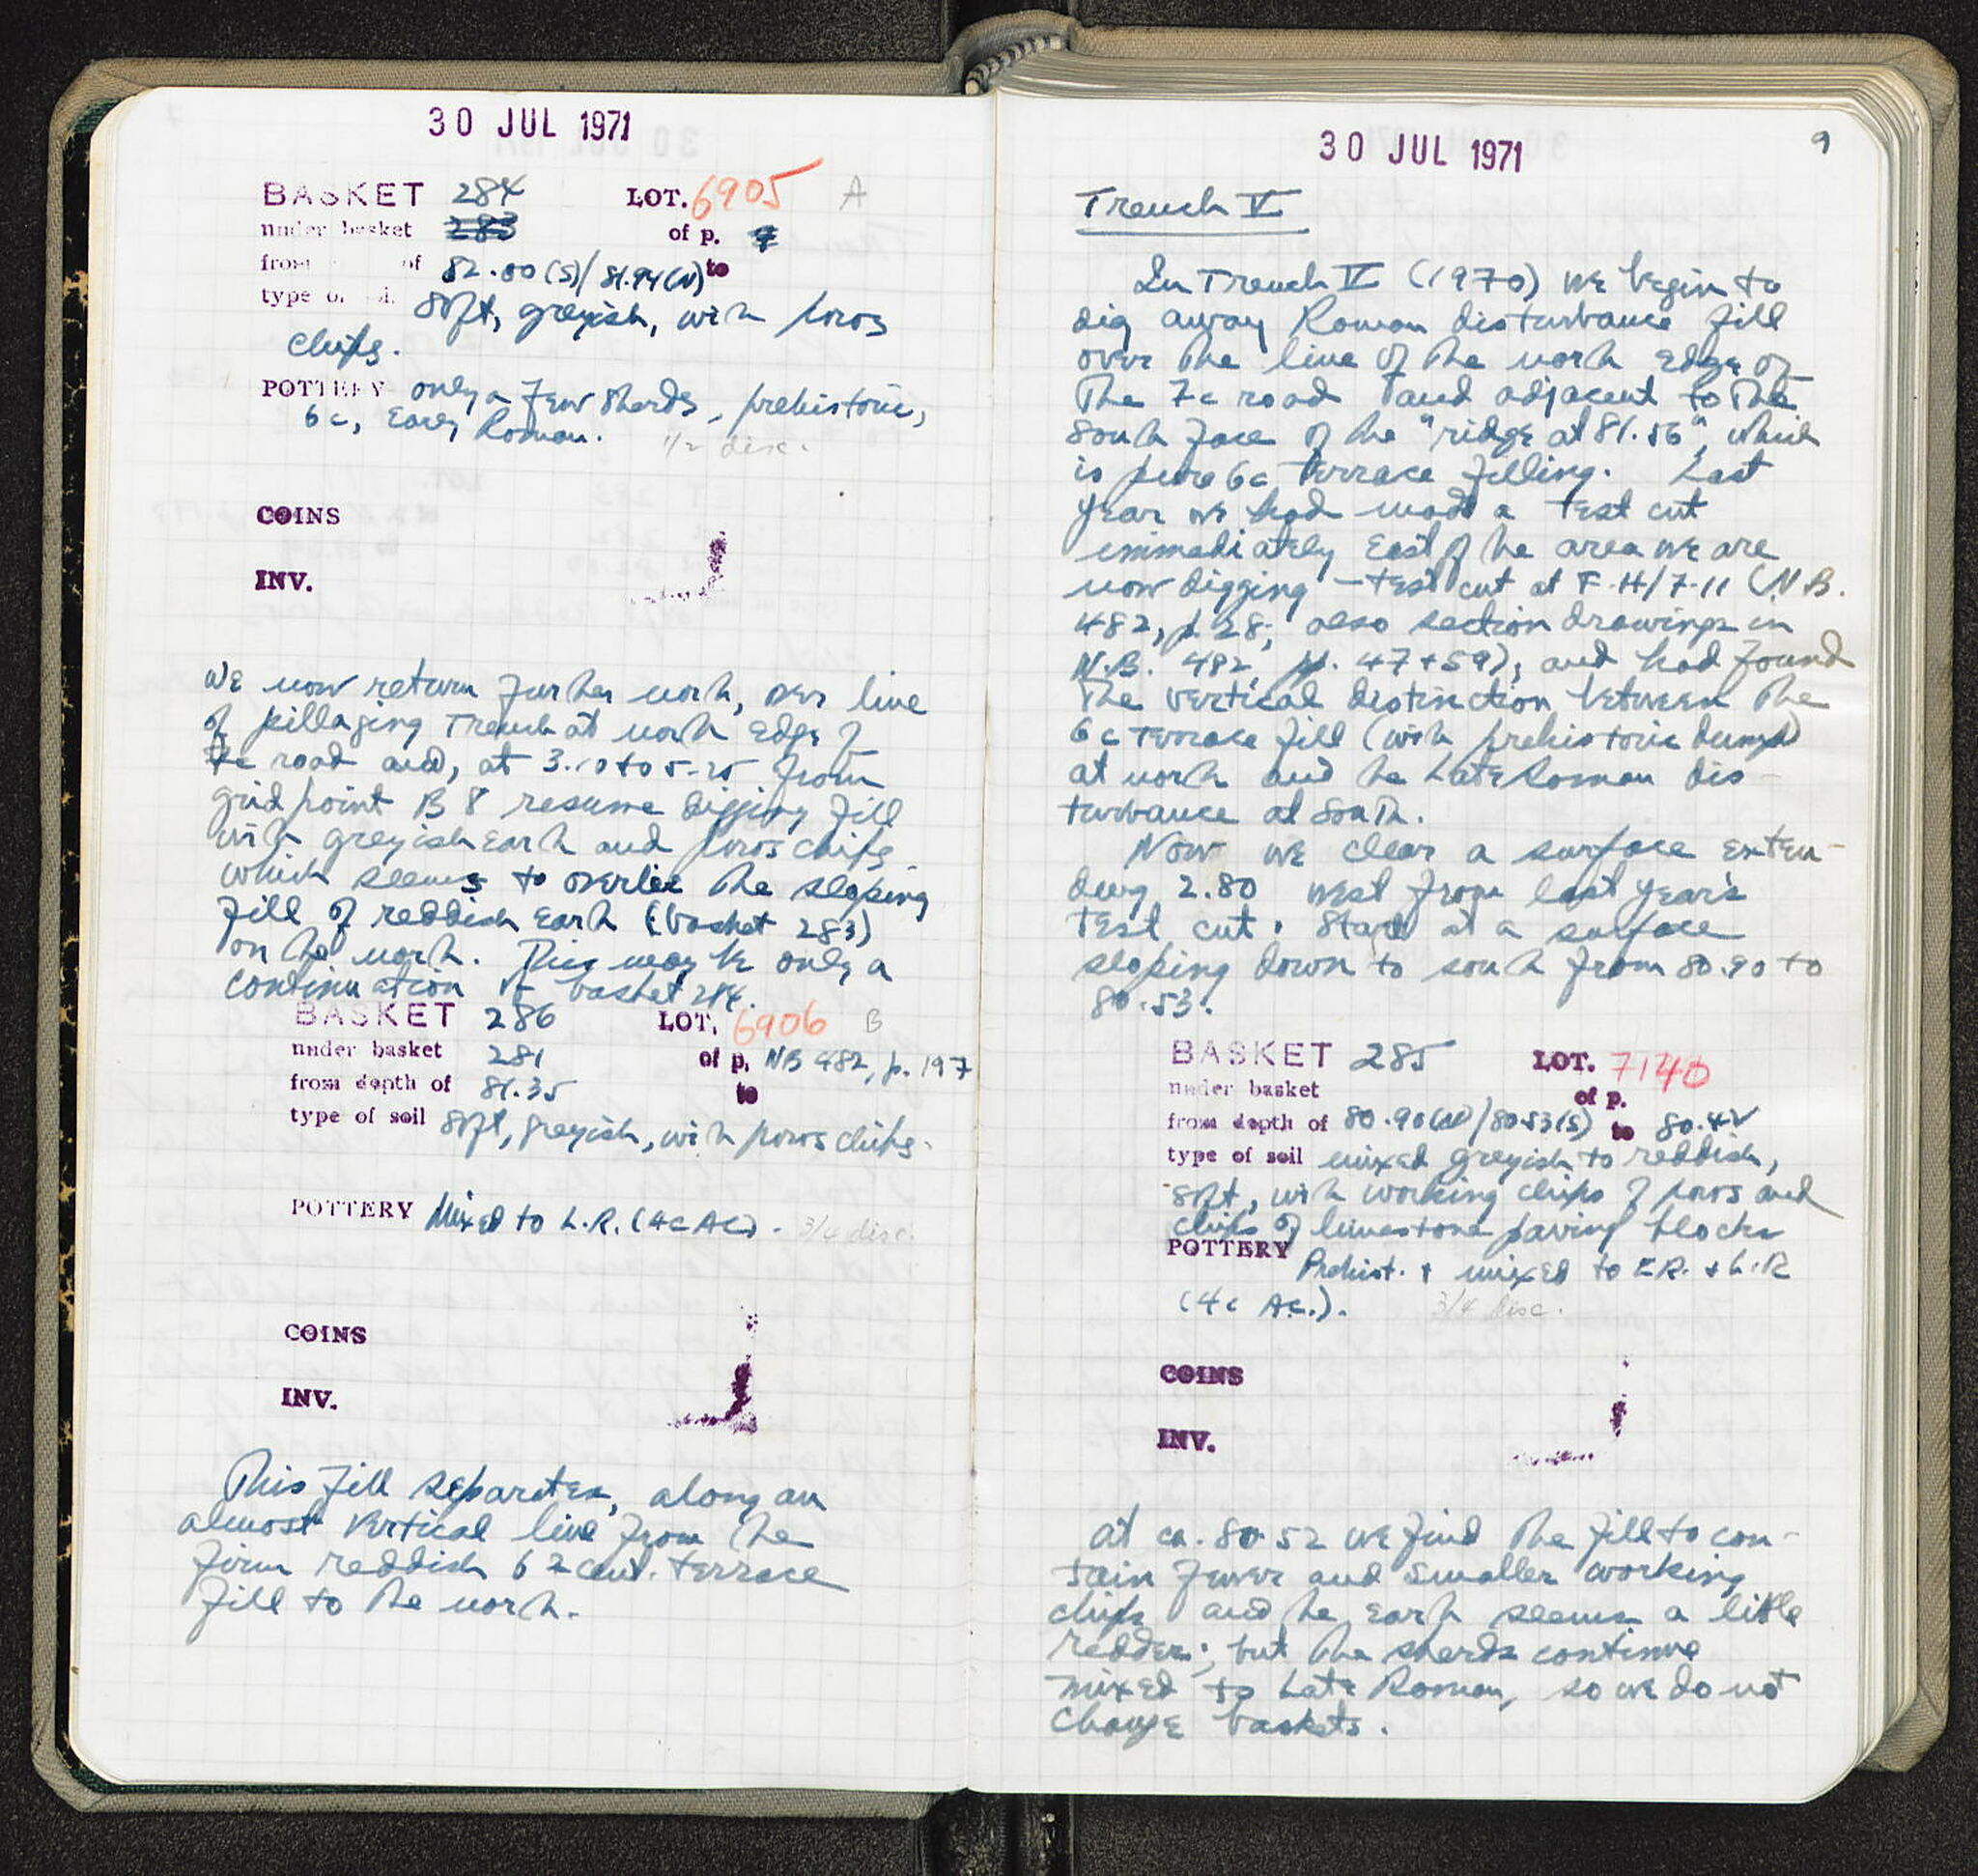 30 JUL 1971
BASKET 284 LOT. 6905 A
under basket 283 of p. 7
from of 82.00 (S)/81.94 (N) to
type of soil soft, greyish, with poros
chips.
POTTERY only a few sherds, prehistoric,
6c, Early Roman. 1/2 disc.
COINS
INV.
We now return further north, over line
of pillaging trench at north edge of
7c road and, at 3.10 to 5.25 from
grid point B 8 resume digging fill
with greyish earth and poros chips
which seems to overlie the sloping
fill of reddish earth (basket 283)
on the north. This may be only a
continuation of basket 284.
BASKET 286 LOT. 6906 B
under basket 281 of p. NB 482, p. 197
from depth of 81.35 to
type of soil soft, greyish, with poros chips.
POTTERY Mixed to L.R. (4c AC). 3/4 disc.
COINS
INV.
This fill separates, along an
almost vertical line from the
firm reddish 6 cent. terrace
fill to the north.
30 JUL 1971
9
Trench V
In Trench V (1970) we begin to
dig away Roman disturbance fill
over the line of the north edge of
the 7c road and adjacent to the
south face of the "ridge at 81.56", which
is pure 6c terrace filling. Last
year we had made a test cut
immediately East of the area we are
now digging – test cut at F-H/7-11 (N.B.
482, p. 28; also section drawings in
N.B. 482, pp. 47+59), and had found
the vertical distinction between the
6c terrace fill (with prehistoric dump)
at north and the Late Roman dis-
turbance at South.
Now we clear a surface exten-
ding 2.80 west from last year's
test cut. Start at a surface
sloping down to south from 80.90 to
80.53.
BASKET 285 LOT. 7140
under basket of p.
from depth of 80.90(N)/80.53(S) to 80.42
type of soil mixed greyish to reddish,
soft, with working chips of poros and
chips of limestone paving blocks
POTTERY Prehist. + mixed to E.R. + L.R
(4c AC.). 3/4 disc.
COINS
INV.
at ca. 80.52 we find the fill to con-
tain fewer and smaller working
chips and the earth seems a little
redder; but the sherds continue
mixed to Late Roman, so we do not
change baskets.